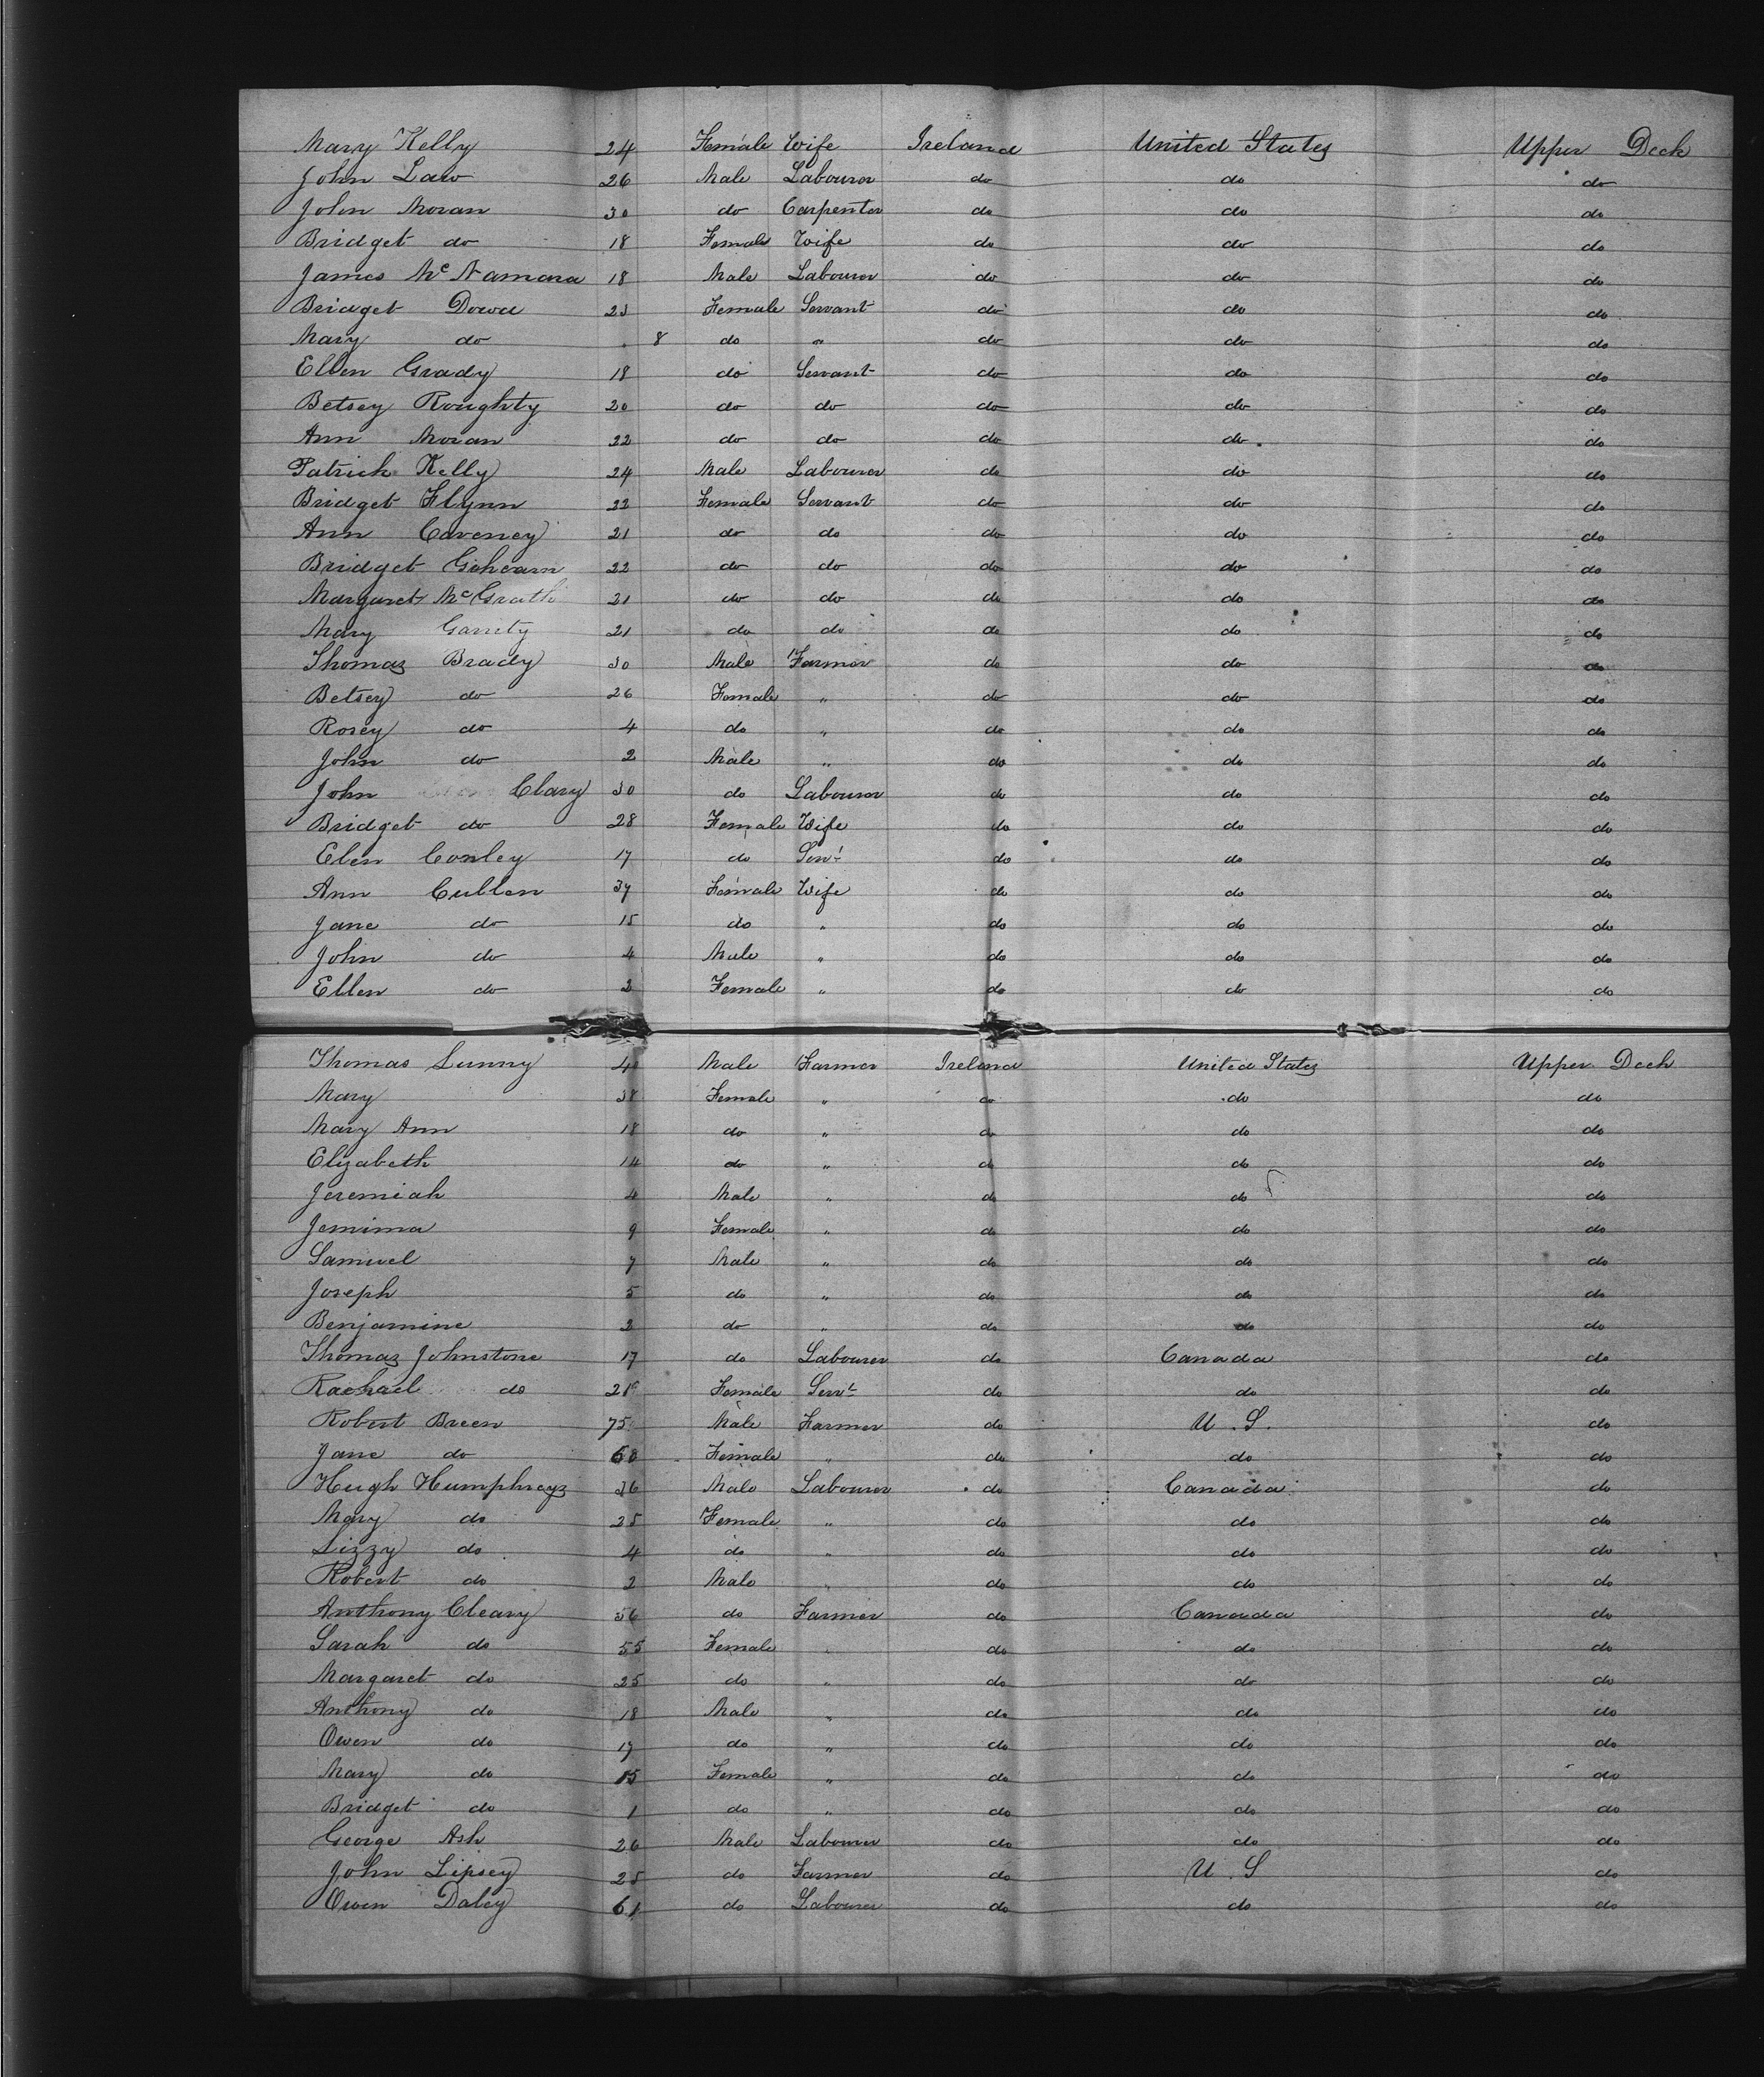 Mary Kelly 24 Female Wife Ireland United States Upper Deck
John Law 26 Male Labourer do do do
John Moran 30 do Carpenter do do do
Bridget do 18 Female Wife do do do
James McNamara 18 Male Labourer do do do
Bridget Dowd 23 Female Servant do do do
Mary do 8 do " do do do
Ellen Grady 18 do Servant do do do
Betsey Roughty 20 do do do do do
Ann Moran 22 do do do do do
Patrick Kelly 24 Male Labourer do do do
Bridget Flynn 22 Female Servant do do do
Ann Caveney 21 do do do do do
Bridget Gehearn 22 do do do do do
Margaret McGrath 21 do do do do do
Mary Garrety 21 do do do do do
Thomas Brady 30 Male Farmer do do do
Betsey do 26 Female " do do do
Rosey do 4 do " do do do
John do 2 Male " do do do
John Clary 30 do Labourer do do do
Bridget do 28 Female Wife do do do
Elen Conley 17 do Servt do do do
Ann Cullen 37 Female Wife do do do
Jane do 15 do " do do do
John do 4 Male " do do do
Ellen do 2 Female " do do do
Thomas Lunny Male Farmer Ireland United States Upper Deck
Mary 38 Female " do do do
Mary Ann 18 do " do do do
Elizabeth 14 do " do do do
Jeremiah 4 Male " do do do
Jemima 9 Female " do do do
Samuel 7 Male " do do do
Joseph 5 do " do do do
Benjamine 2 do " do do do
Thomas Johnstone 17 do Labourer do Canada do
Rachael do 21 Female Servt do do do
Robert Breen 75 Male Farmer do U. S. do
Jane do 60 Female " do do do
Hugh Humphreys 36 Male Labourer do Canada do
Mary do 25 Female " do do do
Lizzy do 4 do " do do do
Robert do 2 Male " do do do
Anthony Cleary 56 do Farmer do Canada do
Sarah do 55 Female " do do do
Margaret do 25 do " do do do
Anthony do 18 Male " do do do
Owen do 17 do " do do do
Mary do 15 Female " do do do
Bridget do 1 do " do do do
George Ash 26 Male Labourer do do do
John Lipsey 25 do Farmer do U. S do
Owen Daley 61 do Labourer do do do